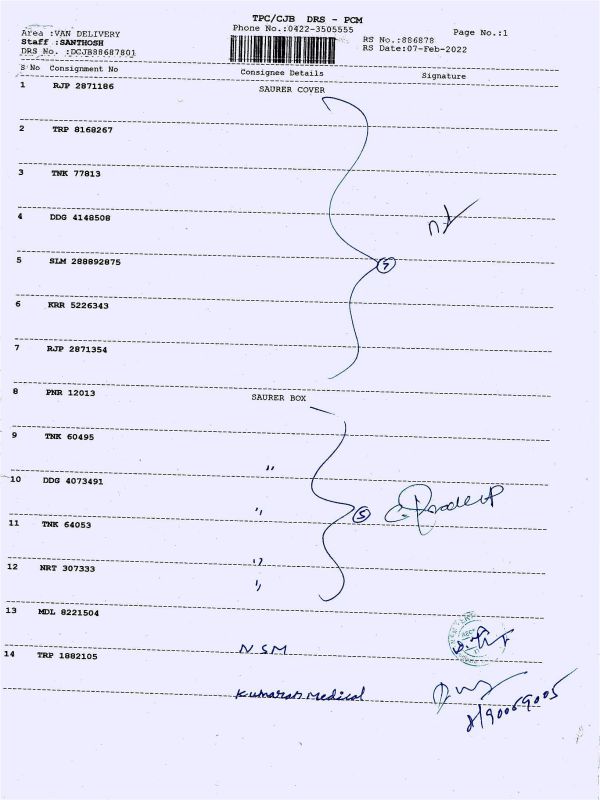 TPC/CJB DRS - PCM
Area :VAN DELIVERY
Phone No.:0422-3505555
Page No.:1
Staff :SANTHOSH
RS No.:886878
DRS No. :DCJB88687801
RS Date:07-Feb-2022
S No Consignment No Consignee Details Signature
1 RJP 2871186 SAURER COVER
2 TRP 8168267
3 TNK 77813
4 DDG 4148508
5 SLM 288892875
6 KRR 5226343
7 RJP 2871354
8 PNR 12013 SAURER BOX
9 TNK 60495
"
10 DDG 4073491
"
5 Pradeep
11 TNK 64053
"
12 NRT 307333
"
13 MDL 8221504
NSM
14 TRP 1882105
Kumaran Medical